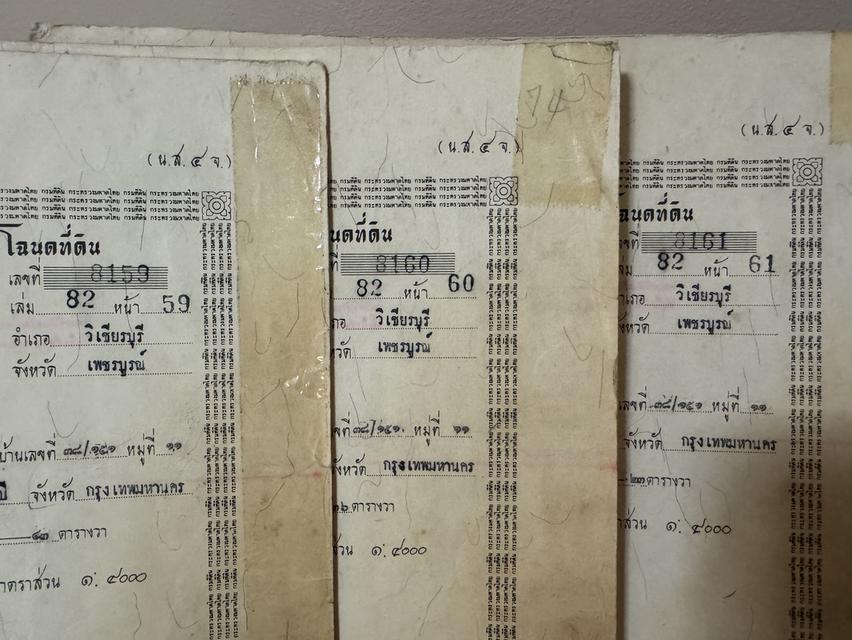 (น.ส. ๔ จ.)
โฉนดที่ดิน
เลขที่ 8159
เล่ม 82 หน้า 59
อำเภอ วิเชียรบุรี
จังหวัด เพชรบูรณ์
บ้านเลขที่ ๓๘/๑๕๑ หมู่ที่ ๑๑
จังหวัด กรุงเทพมหานคร
๔๓ ตารางวา
มาตราส่วน ๑: ๔๐๐๐
74
(น.ส. ๔ จ.)
นดที่ดิน
ที่ 8160
82 หน้า 60
ภอ วิเชียรบุรี
หวัด เพชรบูรณ์
ที่ ๓๘/๑๕๑ หมู่ที่ ๑๑
จังหวัด กรุงเทพมหานคร
ตารางวา
ส่วน ๑: ๔๐๐๐
(น.ส. ๔ จ.)
ฉนดที่ดิน
ขที่ 8161
ล่ม 82 หน้า 61
อำเภอ วิเชียรบุรี
จังหวัด เพชรบูรณ์
เลขที่ ๓๘/๑๕๑ หมู่ที่ ๑๑
จังหวัด กรุงเทพมหานคร
๒๓ ตารางวา
ราส่วน ๑: ๔๐๐๐